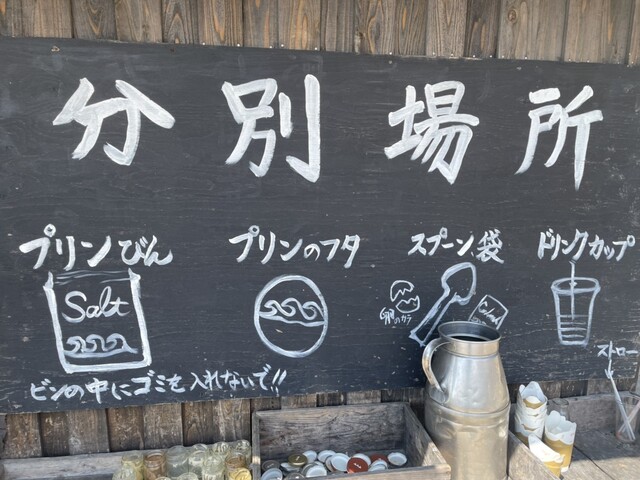 分別場所
プリンびん
プリンのフタ
スプーン、袋
ドリンクカップ
Salt
卵のカラ
ストロー
ビンの中にゴミを入れないで!!